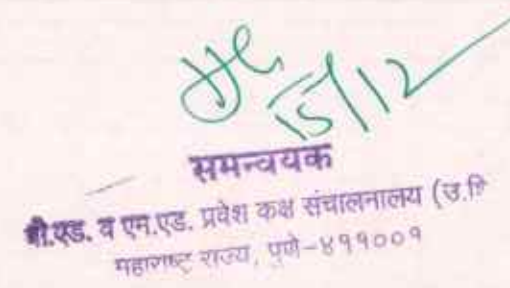 15/12
समन्वयक
बी.एड. व एम.एड. प्रवेश कक्ष संचालनालय (उ.शि
महाराष्ट्र राज्य, पुणे-४११००१